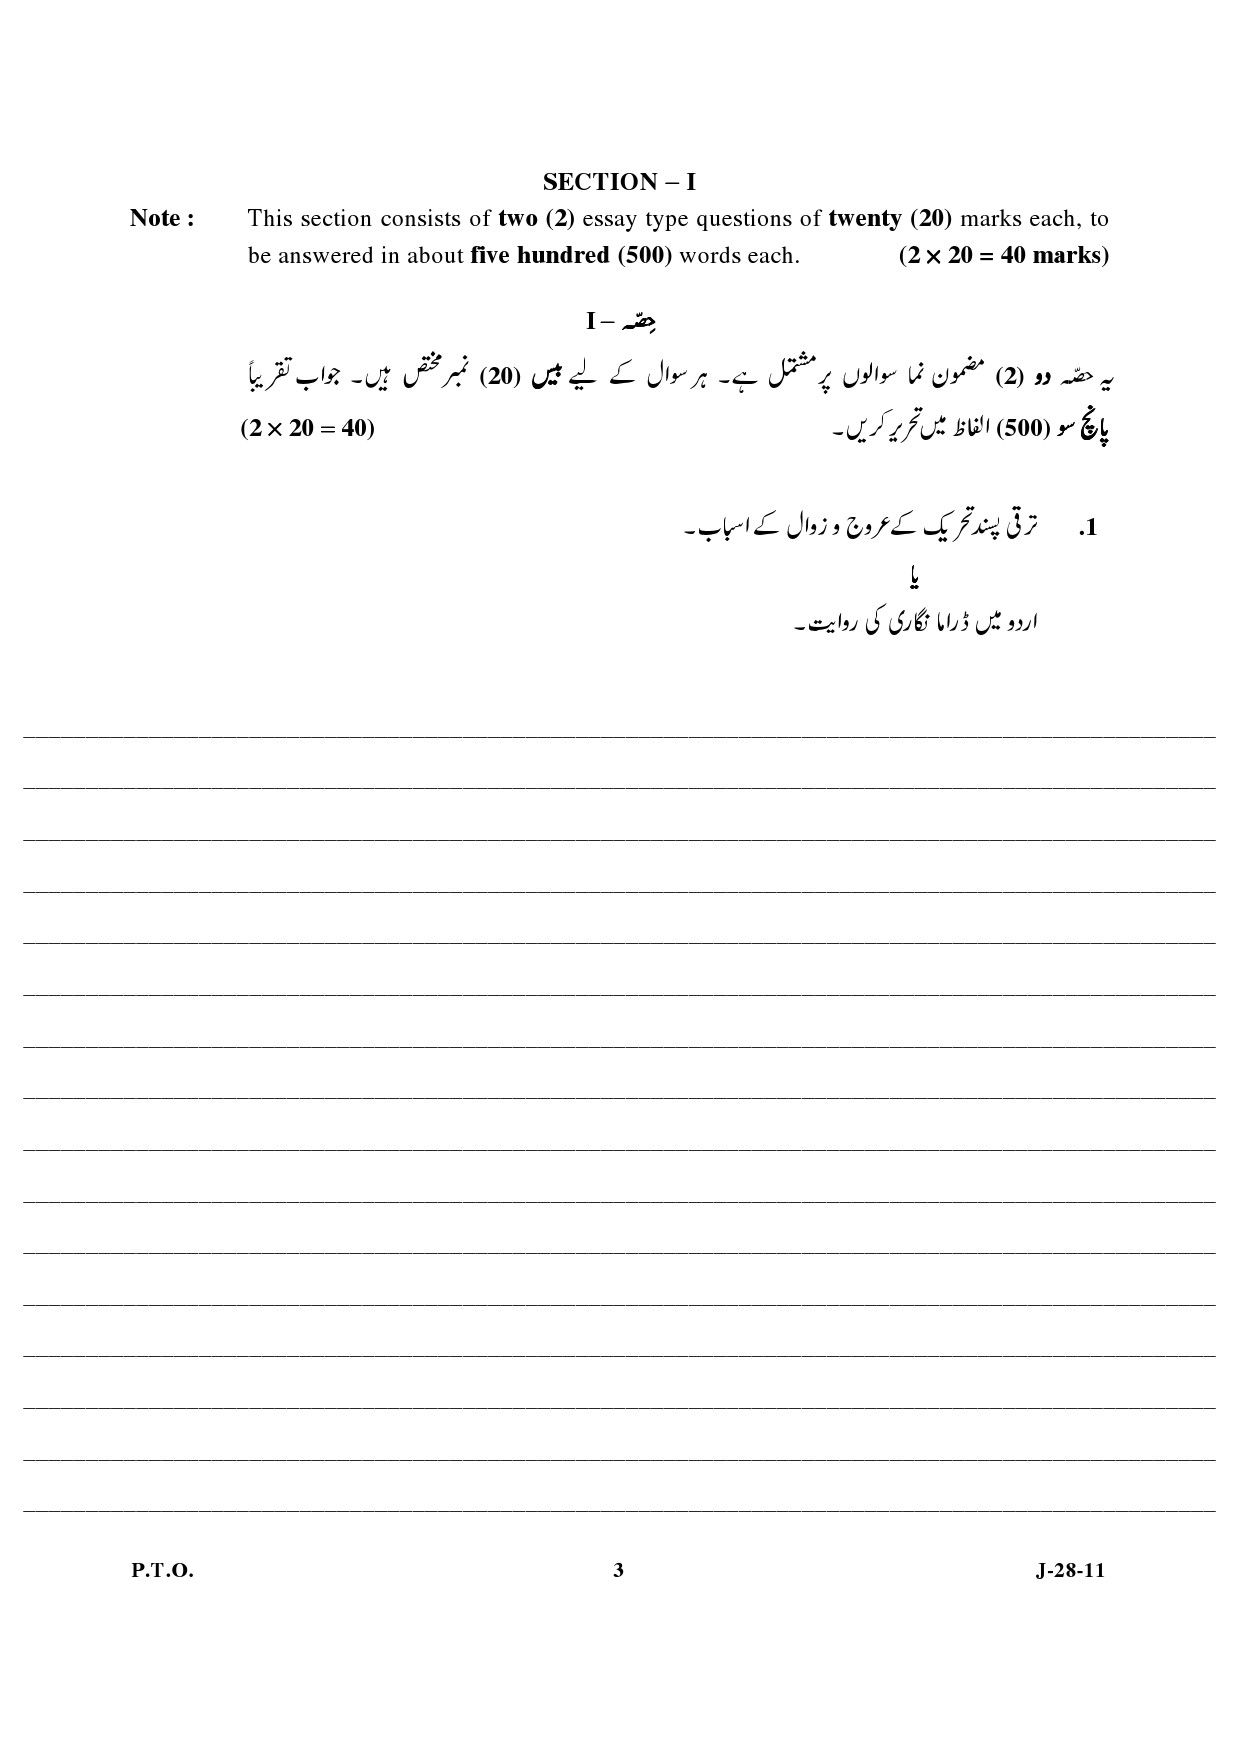 SECTION – I
Note : This section consists of two (2) essay type questions of twenty (20) marks each, to
be answered in about five hundred (500) words each. (2 × 20 = 40 marks)
حِصّہ – I
یہ حصّہ دو (2) مضمون نما سوالوں پر مشتمل ہے۔ ہر سوال کے لیے بیس (20) نمبر مختص ہیں۔ جواب تقریباً
پانچ سو (500) الفاظ میں تحریر کریں۔ (2 × 20 = 40)
1. ترقی پسند تحریک کے عروج و زوال کے اسباب۔
یا
اردو میں ڈراما نگاری کی روایت۔
P.T.O. 3 J-28-11